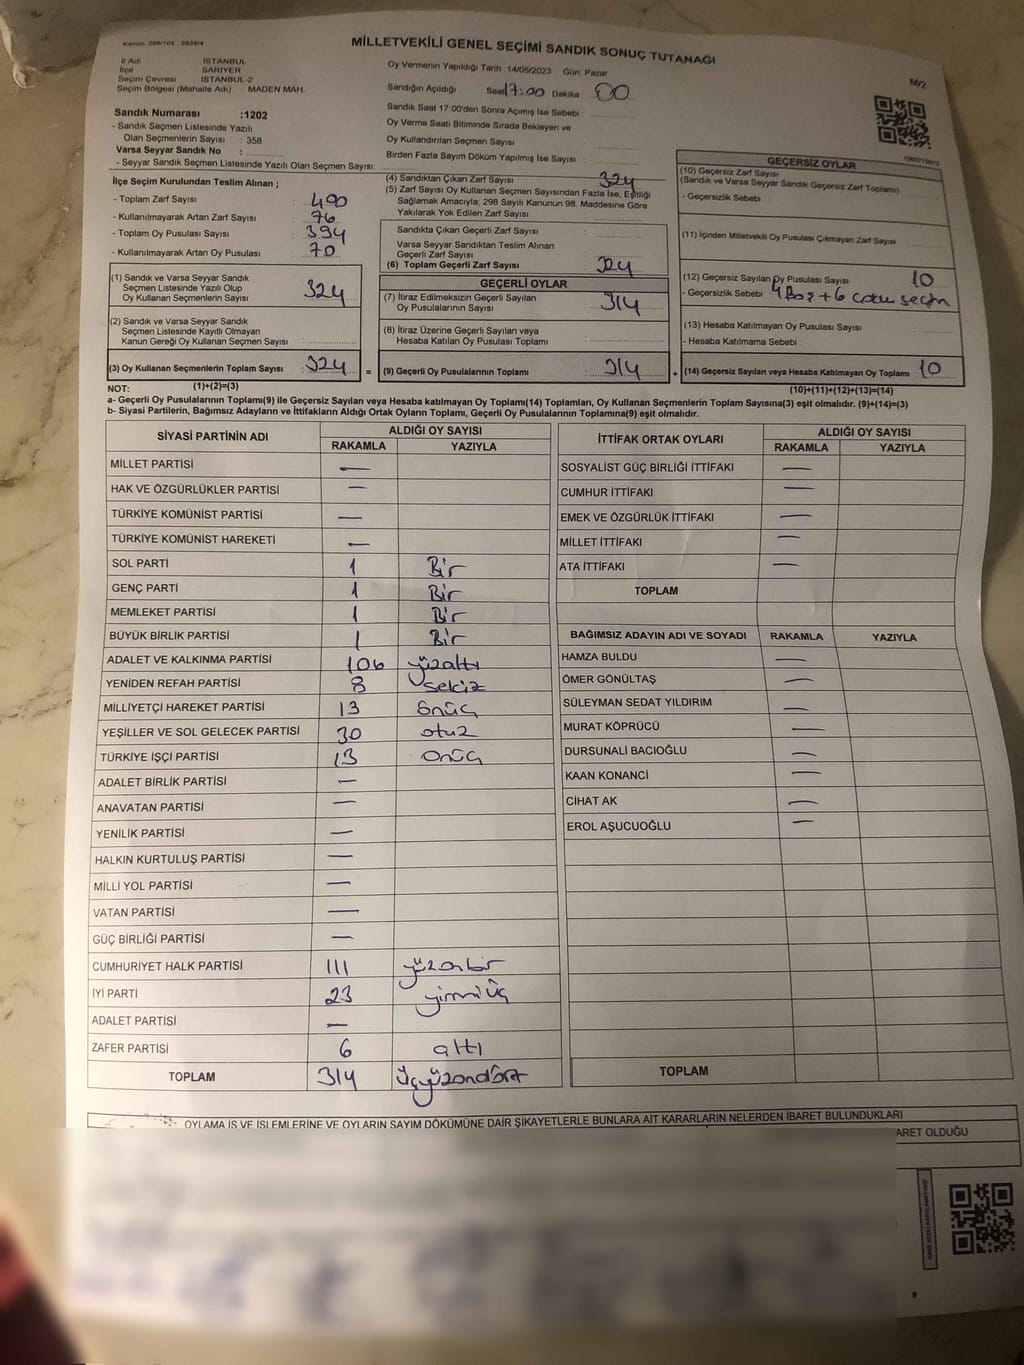 MİLLETVEKİLİ GENEL SEÇİMİ SANDIK SONUÇ TUTANAĞI
M/2
İl Adı : İSTANBUL
İlçe : SARIYER
Seçim Çevresi : İSTANBUL-2
Seçim Bölgesi (Mahalle Adı) : MADEN MAH.
Oy Vermenin Yapıldığı Tarih : 14/05/2023 Gün: Pazar
Sandığın Açıldığı Saat 17:00 Dakika : 00
Sandık Saat 17:00'den Sonra Açımış İse Sebebi :
Oy Verme Saati Bitiminde Sırada Bekleyen ve
Oy Kullandırılan Seçmen Sayısı :
Birden Fazla Sayım Döküm Yapılmış İse Sayısı :
Sandık Numarası :1202
- Sandık Seçmen Listesinde Yazılı
Olan Seçmenlerin Sayısı : 358
Varsa Seyyar Sandık No :
- Seyyar Sandık Seçmen Listesinde Yazılı Olan Seçmen Sayısı:
İlçe Seçim Kurulundan Teslim Alınan ;
- Toplam Zarf Sayısı : 400
- Kullanılmayarak Artan Zarf Sayısı : 76
- Toplam Oy Pusulası Sayısı : 394
- Kullanılmayarak Artan Oy Pusulası : 70
(1) Sandık ve Varsa Seyyar Sandık
Seçmen Listesinde Yazılı Olup
Oy Kullanan Seçmenlerin Sayısı : 324
(2) Sandık ve Varsa Seyyar Sandık
Seçmen Listesinde Kayıtlı Olmayan
Kanun Gereği Oy Kullanan Seçmen Sayısı :
(3) Oy Kullanan Seçmenlerin Toplam Sayısı : 324
(4) Sandıktan Çıkan Zarf Sayısı : 324
(5) Zarf Sayısı Oy Kullanan Seçmen Sayısından Fazla İse, Eşitliği
Sağlamak Amacıyla; 298 Sayılı Kanunun 98. Maddesine Göre
Yakılarak Yok Edilen Zarf Sayısı :
Sandıkta Çıkan Geçerli Zarf Sayısı :
Varsa Seyyar Sandıktan Teslim Alınan
Geçerli Zarf Sayısı :
(6) Toplam Geçerli Zarf Sayısı : 324
GEÇERLİ OYLAR
(7) İtiraz Edilmeksizin Geçerli Sayılan
Oy Pusulalarının Sayısı : 314
(8) İtiraz Üzerine Geçerli Sayılan veya
Hesaba Katılan Oy Pusulası Toplamı :
= (9) Geçerli Oy Pusulalarının Toplamı : 314
GEÇERSİZ OYLAR
(10) Geçersiz Zarf Sayısı
(Sandık ve Varsa Seyyar Sandık Geçersiz Zarf Toplamı)
- Geçersizlik Sebebi :
(11) İçinden Milletvekili Oy Pusulası Çıkmayan Zarf Sayısı :
(12) Geçersiz Sayılan Oy Pusulası Sayısı : 10
- Geçersizlik Sebebi : 4 Boş + 6 çoklu seçim
(13) Hesaba Katılmayan Oy Pusulası Sayısı :
- Hesaba Katılmama Sebebi :
+ (14) Geçersiz Sayılan veya Hesaba Katılmayan Oy Toplamı : 10
NOT: (1)+(2)=(3)
(10)+(11)+(12)+(13)=(14)
a- Geçerli Oy Pusulalarının Toplamı(9) ile Geçersiz Sayılan veya Hesaba katılmayan Oy Toplamı(14) Toplamları, Oy Kullanan Seçmenlerin Toplam Sayısına(3) eşit olmalıdır. (9)+(14)=(3)
b- Siyasi Partilerin, Bağımsız Adayların ve İttifakların Aldığı Ortak Oyların Toplamı, Geçerli Oy Pusulalarının Toplamına(9) eşit olmalıdır.
SİYASİ PARTİNİN ADI ALDIĞI OY SAYISI
RAKAMLA YAZIYLA
MİLLET PARTİSİ —
HAK VE ÖZGÜRLÜKLER PARTİSİ —
TÜRKİYE KOMÜNİST PARTİSİ —
TÜRKİYE KOMÜNİST HAREKETİ —
SOL PARTİ 1 Bir
GENÇ PARTİ 1 Bir
MEMLEKET PARTİSİ 1 Bir
BÜYÜK BİRLİK PARTİSİ 1 Bir
ADALET VE KALKINMA PARTİSİ 106 yüzaltı
YENİDEN REFAH PARTİSİ 8 sekiz
MİLLİYETÇİ HAREKET PARTİSİ 13 onüç
YEŞİLLER VE SOL GELECEK PARTİSİ 30 otuz
TÜRKİYE İŞÇİ PARTİSİ 13 onüç
ADALET BİRLİK PARTİSİ —
ANAVATAN PARTİSİ —
YENİLİK PARTİSİ —
HALKIN KURTULUŞ PARTİSİ —
MİLLİ YOL PARTİSİ —
VATAN PARTİSİ —
GÜÇ BİRLİĞİ PARTİSİ —
CUMHURİYET HALK PARTİSİ 111 yüzonbir
İYİ PARTİ 23 yirmiüç
ADALET PARTİSİ —
ZAFER PARTİSİ 6 altı
TOPLAM 314 üçyüzondört
İTTİFAK ORTAK OYLARI ALDIĞI OY SAYISI
RAKAMLA YAZIYLA
SOSYALİST GÜÇ BİRLİĞİ İTTİFAKI —
CUMHUR İTTİFAKI —
EMEK VE ÖZGÜRLÜK İTTİFAKI —
MİLLET İTTİFAKI —
ATA İTTİFAKI —
TOPLAM
BAĞIMSIZ ADAYIN ADI VE SOYADI RAKAMLA YAZIYLA
HAMZA BULDU —
ÖMER GÖNÜLTAŞ —
SÜLEYMAN SEDAT YILDIRIM —
MURAT KÖPRÜCÜ —
DURSUNALİ BACIOĞLU —
KAAN KONANCİ —
CİHAT AK —
EROL AŞUCUOĞLU —
TOPLAM
OYLAMA İŞ VE İŞLEMLERİNE VE OYLARIN SAYIM DÖKÜMÜNE DAİR ŞİKAYETLERLE BUNLARA AİT KARARLARIN NELERDEN İBARET BULUNDUKLARI
ARET OLDUĞU